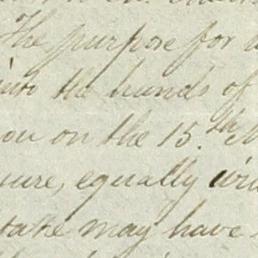 The purpose for
into the hands of
ou on the 15.th
ure, equally
take may have